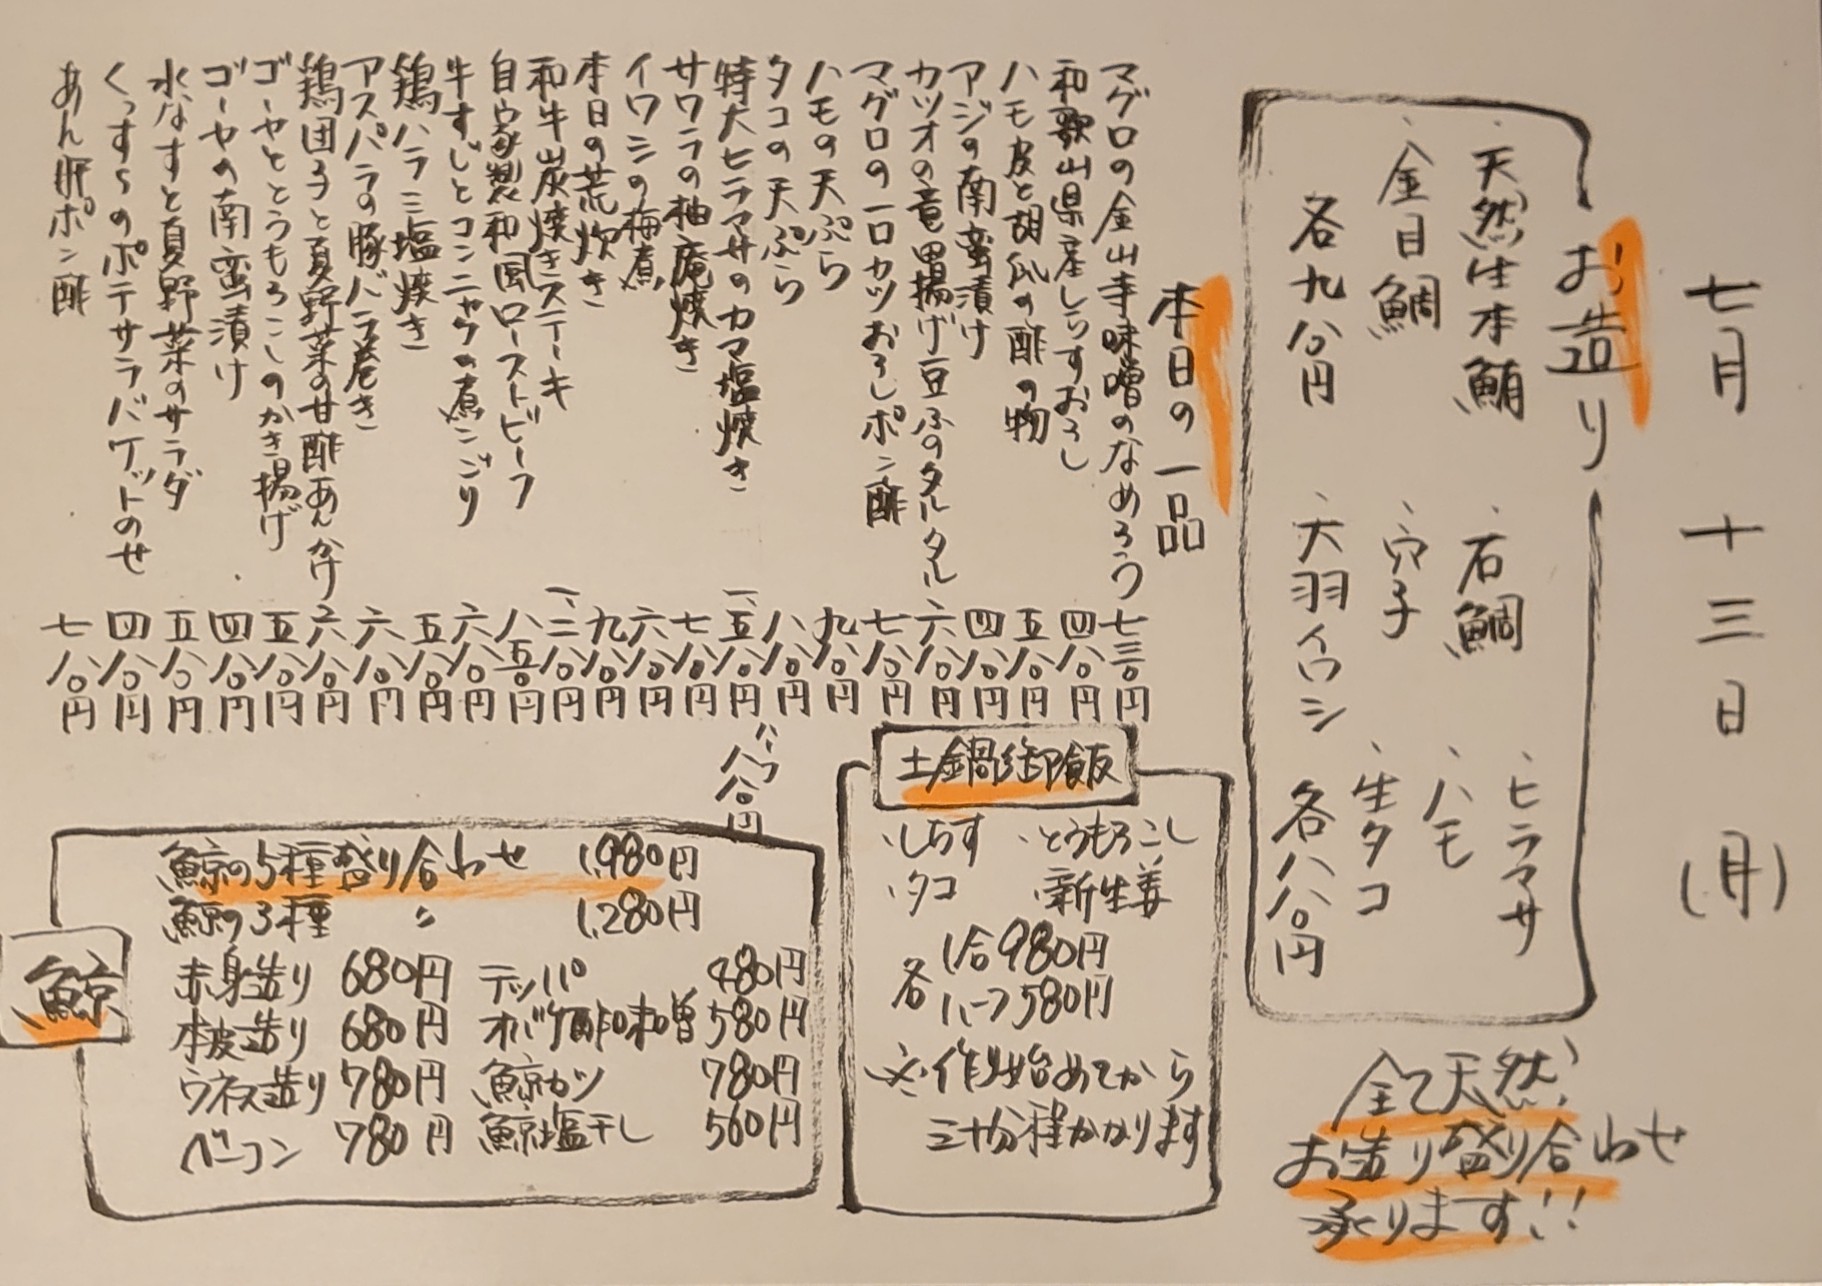 七月 十三日 (月)
お造り
・天然生本鮪 ・石鯛 ・ヒラマサ
・金目鯛 ・穴子 ・ハモ
・大羽イワシ ・生タコ
各九八〇円 各八八〇円
全て天然!
お造り盛り合わせ
承ります!!
本日の一品
マグロの金山寺味噌のなめろう 七三〇円
和歌山県産しらすおろし 四八〇円
ハモ皮と胡瓜の酢の物 五八〇円
アジの南蛮漬け 四八〇円
カツオの竜田揚げ豆ふのタルタル 六八〇円
マグロの一口カツおろしポン酢 七八〇円
ハモの天ぷら 九八〇円
タコの天ぷら 八八〇円
特大ヒラマサのカマ塩焼き 一、五八〇円
ハーフ八八〇円
サワラの柚庵焼き 七八〇円
イワシの梅煮 六八〇円
本日の荒炊き 九八〇円
和牛炭焼きステーキ 一、二八〇円
自家製和風ローストビーフ 八五〇円
牛すじとコンニャクの煮こごり 六八〇円
鶏ハラミ塩焼き 五八〇円
アスパラの豚バラ巻き 六八〇円
鶏団子と夏野菜の甘酢あんかけ 六八〇円
ゴーヤととうもろこしのかき揚げ 五八〇円
ゴーヤの南蛮漬け 四八〇円
水なすと夏野菜のサラダ 五八〇円
くんすらのポテサラバケットのせ 四八〇円
あん肝ポン酢 七八〇円
土鍋御飯
・しらす ・とうもろこし
・タコ ・新生姜
各 1合980円
ハーフ580円
※作り始めてから
三十分程かかります
鯨
鯨の5種盛り合わせ 1,980円
鯨の3種 〃 1,280円
赤身造り 680円 テッパ 480円
本皮造り 680円 オバケ酢味噌 580円
ウネス造り 780円 鯨カツ 780円
ベーコン 780円 鯨塩干し 560円